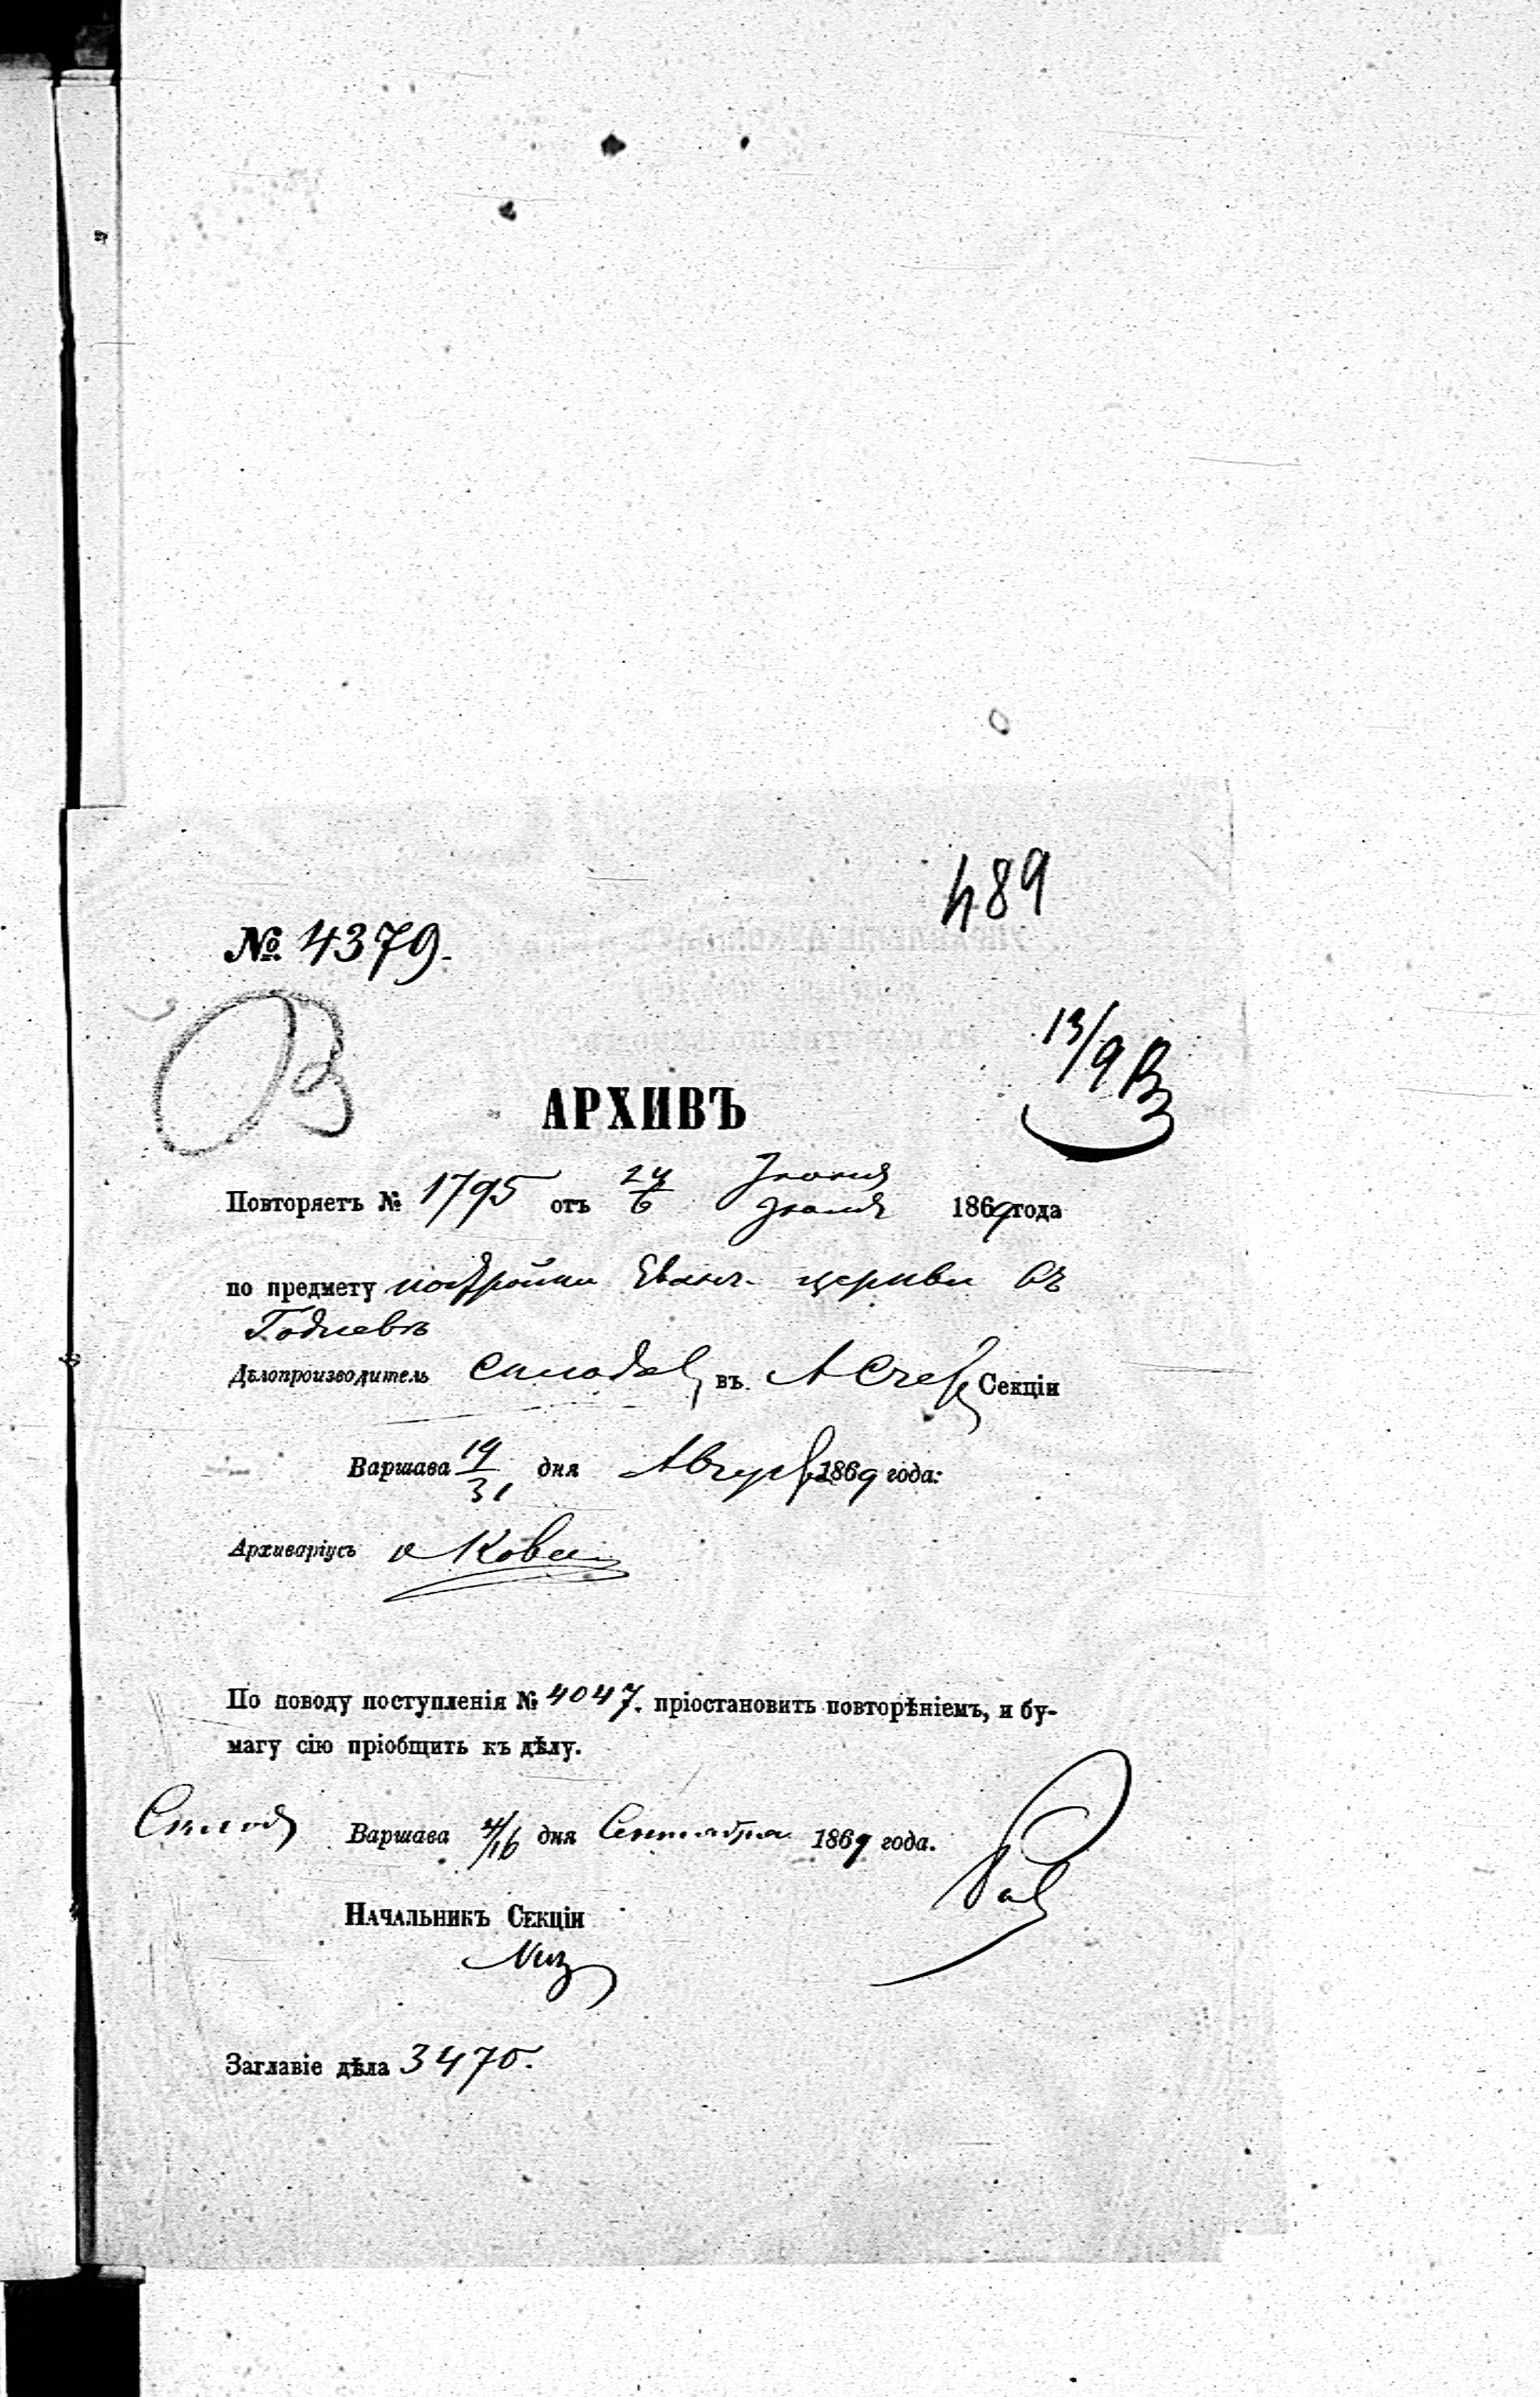 489
№ 4379.
13/9
АРХИВЪ
Повторяетъ № 1795 отъ 24/6 Іюня/Іюля 1869 года
по предмету постройки Еванг. церкви въ
Годлевѣ
Дѣлопроизводитель въ Секціи
Варшава 19/31 дня Августа 1869 года:
Архиваріусъ
По поводу поступленія № 4047. пріостановить повторѣніемъ, и бу-
магу сію пріобщить къ дѣлу.
Варшава 4/16 дня Сентября 1869 года.
Начальникъ Секціи
Заглавіе дѣла 3470.